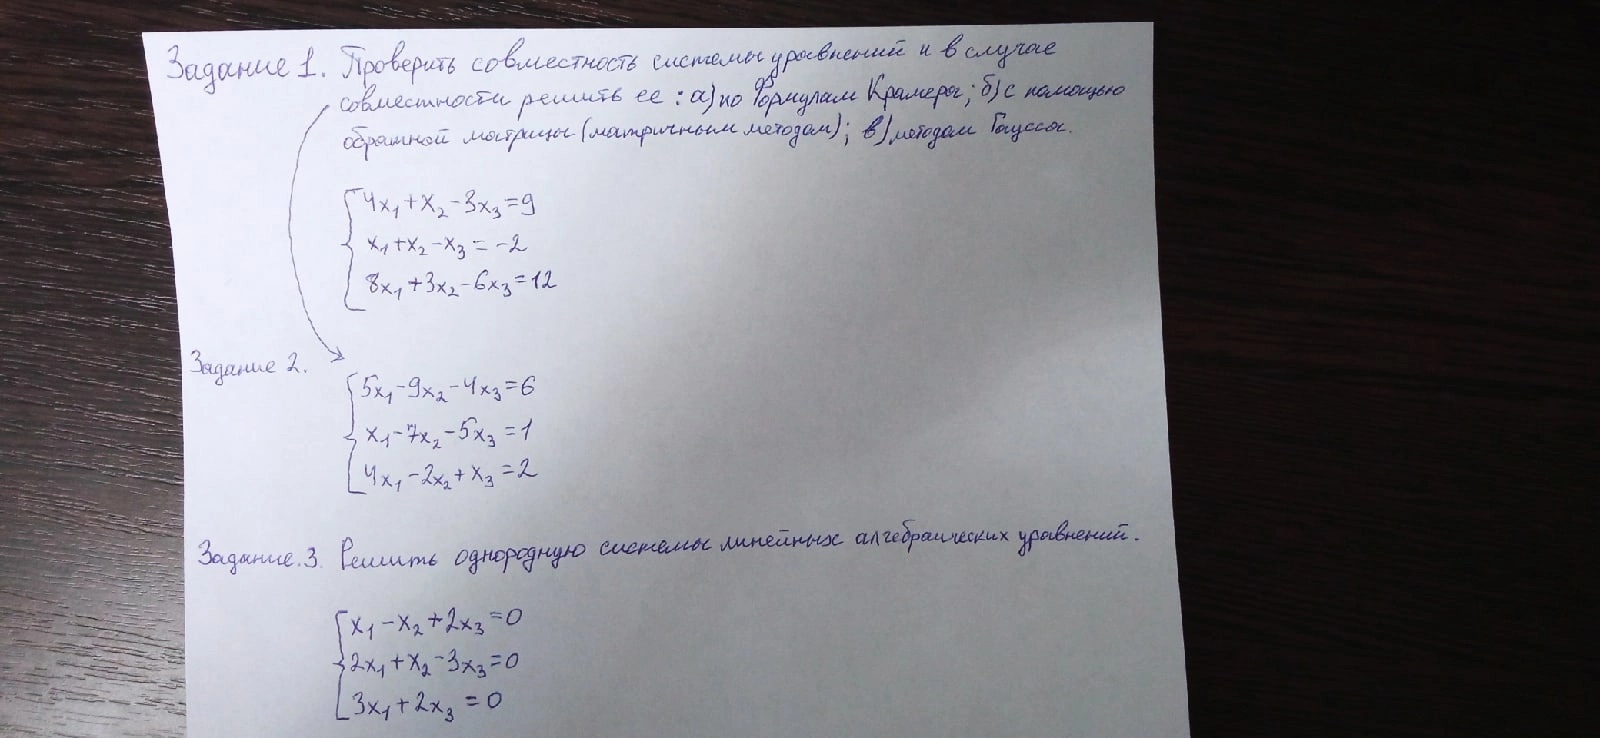 Задание 1. Проверить совместность системы уравнений и в случае
совместности решить ее: а) по формулам Крамера; б) с помощью
обратной матрицы (матричным методом); в) методом Гаусса.
4x₁+x₂-3x₃=9
x₁+x₂-x₃=-2
8x₁+3x₂-6x₃=12
Задание 2.
5x₁-9x₂-4x₃=6
x₁-7x₂-5x₃=1
4x₁-2x₂+x₃=2
Задание.3. Решить однородную системы линейных алгебраических уравнений.
x₁-x₂+2x₃=0
2x₁+x₂-3x₃=0
3x₁+2x₃=0